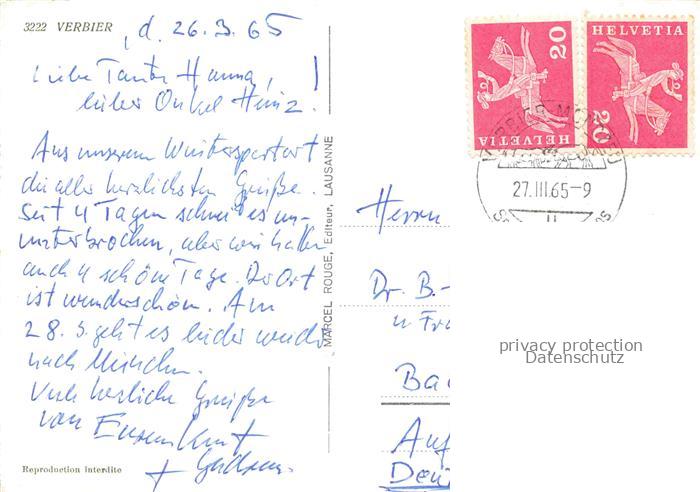 3222 VERBIER
, d. 26.3.65
Liebe Tante Hanna,
lieber Onkel Heinz!
Aus unserem Wintersportort
die allerherzlichsten Grüße.
Seit 4 Tagen schneit es un-
unterbrochen, aber wir hatten
auch 4 schöne Tage. Der Ort
ist wunderschön. Am
28.3. geht es leider wieder
nach München.
Viele herzliche Grüße
von Eurem Knut
+
Reproduction interdite
MARCEL ROUGE, Editeur, LAUSANNE
HELVETIA
20
HELVETIA
20
27.III.65-9
Herrn
Dr. B.-
u Fra
Ba
Auf
Deut
privacy protection
Datenschutz